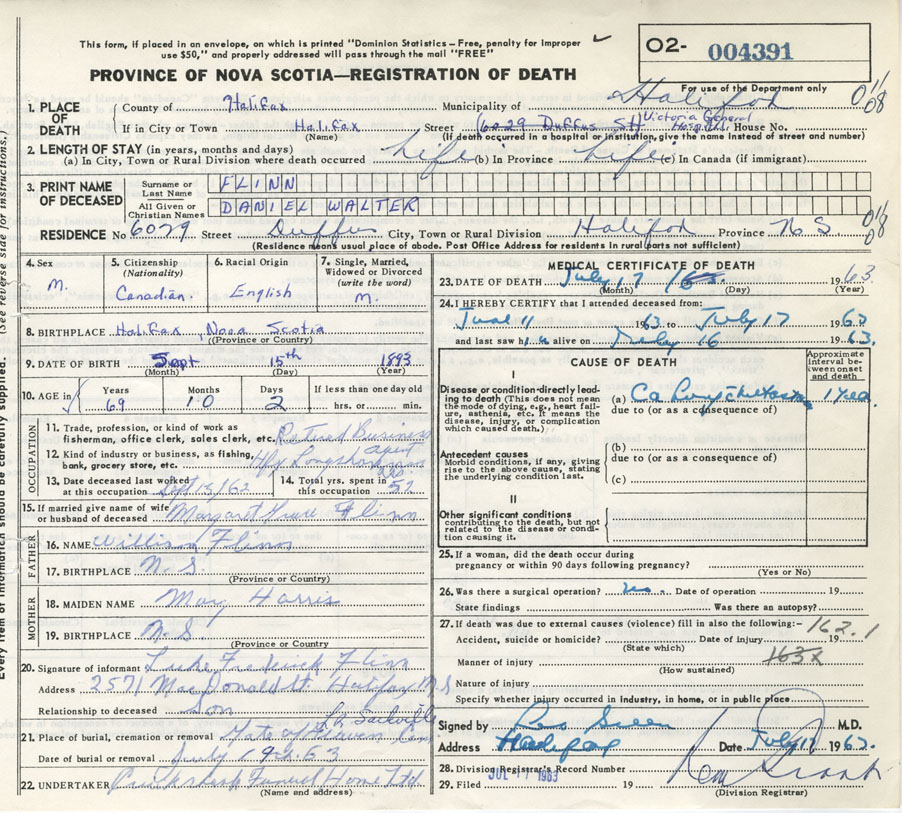 This form, if placed in an envelope, on which is printed "Dominion Statistics – Free, penalty for improper
use $50," and properly addressed will pass through the mail "FREE"
O2- 004391
PROVINCE OF NOVA SCOTIA—REGISTRATION OF DEATH
For use of the Department only
1. PLACE OF DEATH
County of Halifax Municipality of Halifax
If in City or Town Halifax Street 6029 Duffus St Victoria General Hospital House No.
(Name) (If death occurred in a hospital or institution, give the name instead of street and number)
2. LENGTH OF STAY (in years, months and days)
(a) In City, Town or Rural Division where death occurred Life (b) In Province Life (c) In Canada (if immigrant)
3. PRINT NAME OF DECEASED
Surname or Last Name FLINN
All Given or Christian Names DANIEL WALTER
RESIDENCE No 6029 Street Duffus City, Town or Rural Division Halifax Province N S
(Residence means usual place of abode. Post Office Address for residents in rural parts not sufficient)
4. Sex M.
5. Citizenship (Nationality) Canadian.
6. Racial Origin English
7. Single, Married, Widowed or Divorced (write the word) M.
8. BIRTHPLACE Halifax, Nova Scotia
(Province or Country)
9. DATE OF BIRTH Sept 15th 1893
(Month) (Day) (Year)
10. AGE in Years 69 Months 10 Days 2 If less than one day old hrs. or min.
OCCUPATION
11. Trade, profession, or kind of work as
fisherman, office clerk, sales clerk, etc. Retired Business agent
12. Kind of industry or business, as fishing,
bank, grocery store, etc. Hfx Longshoremens Ass.
13. Date deceased last worked
at this occupation Sept 15/62
14. Total yrs. spent in
this occupation 52
15. If married give name of wife
or husband of deceased Margaret Flinn
FATHER
16. NAME William Flinn
17. BIRTHPLACE N. S.
(Province or Country)
MOTHER
18. MAIDEN NAME May Harris
19. BIRTHPLACE N. S.
(Province or Country)
20. Signature of informant Luke Frederick Flinn
Address 2571 MacDonald St Halifax N S
Relationship to deceased Son
21. Place of burial, cremation or removal Gate of Heaven Cem Lr Sackville
Date of burial or removal July 19 63
22. UNDERTAKER Cruikshank Funeral Home Ltd
(Name and address)
MEDICAL CERTIFICATE OF DEATH
23. DATE OF DEATH July 17 1963
(Month) (Day) (Year)
24. I HEREBY CERTIFY that I attended deceased from:
June 11 1963 to July 17 1963
and last saw him alive on July 16 1963.
CAUSE OF DEATH
Approximate interval between onset and death
I
Disease or condition directly leading to death (This does not mean the mode of dying, e.g., heart failure, asthenia, etc. It means the disease, injury, or complication which caused death.)
(a) Ca 1 year
due to (or as a consequence of)
Antecedent causes
Morbid conditions, if any, giving rise to the above cause, stating the underlying condition last.
(b)
due to (or as a consequence of)
(c)
II
Other significant conditions
contributing to the death, but not related to the disease or condition causing it.
25. If a woman, did the death occur during
pregnancy or within 90 days following pregnancy?
(Yes or No)
26. Was there a surgical operation? no Date of operation 19
State findings Was there an autopsy?
27. If death was due to external causes (violence) fill in also the following:— 162.1
Accident, suicide or homicide? Date of injury 19
(State which) 163x
Manner of injury
(How sustained)
Nature of injury
Specify whether injury occurred in industry, in home, or in public place
Signed by Green M.D.
Address Halifax Date July 17 1963.
28. Division Registrar's Record Number
29. Filed JUL 1963 19
(Division Registrar)
(See reverse side for instructions.)
Every item of information should be carefully supplied.